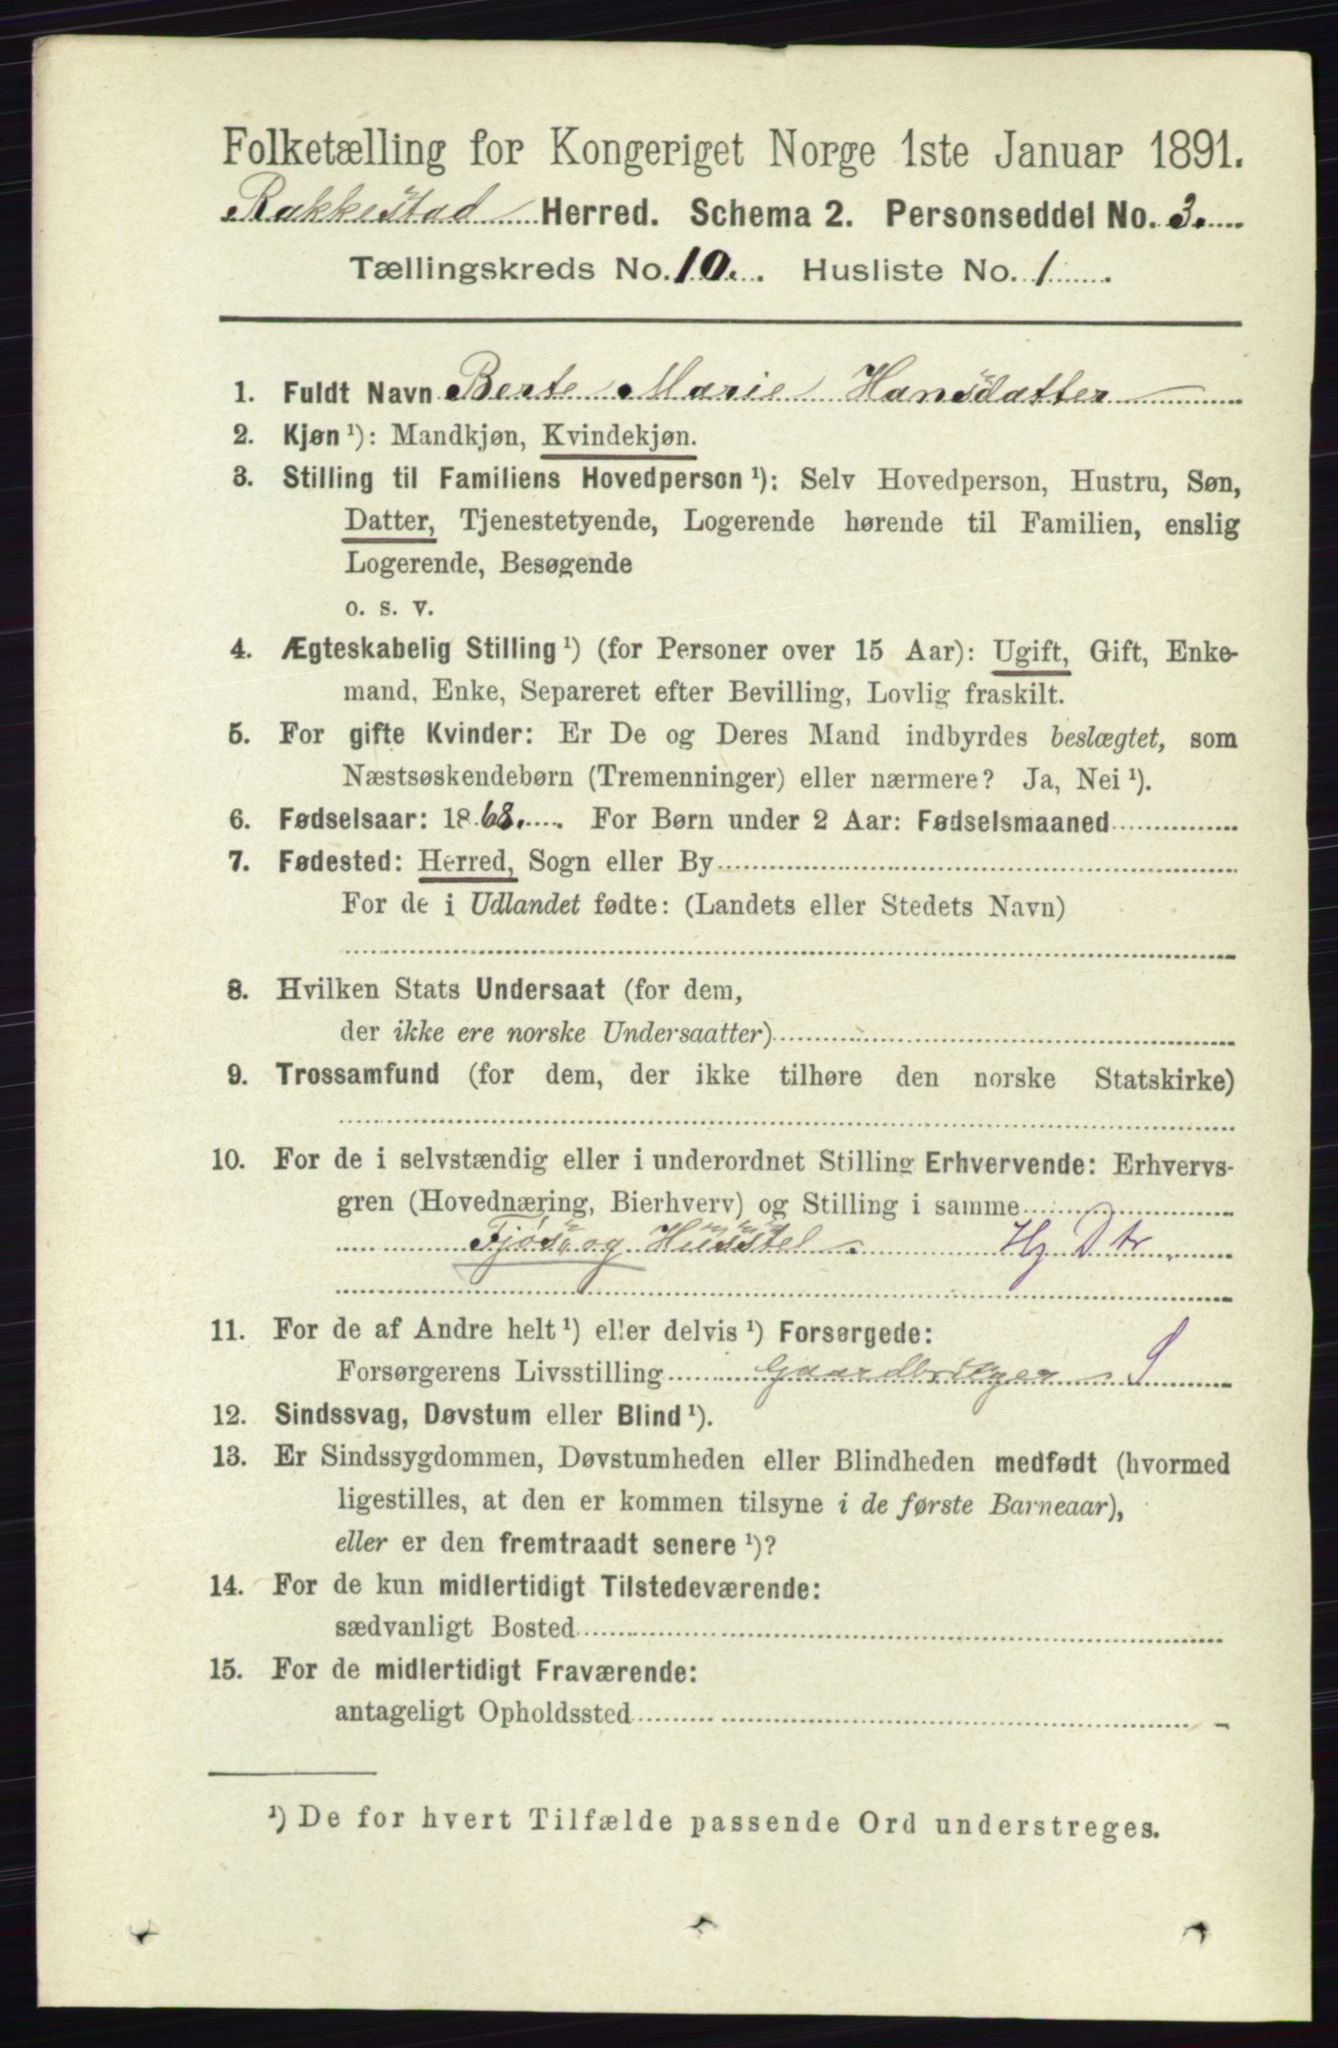 Folketælling for Kongeriget Norge 1ste Januar 1891.
Rakkestad Herred. Schema 2. Personseddel No. 3.
Tællingskreds No. 10. Husliste No. 1
1. Fuldt Navn Berte Marie Hansdatter
2. Kjøn ¹): Mandkjøn, Kvindekjøn.
3. Stilling til Familiens Hovedperson ¹): Selv Hovedperson, Hustru, Søn,
Datter, Tjenestetyende, Logerende hørende til Familien, enslig
Logerende, Besøgende
o. s. v.
4. Ægteskabelig Stilling ¹) (for Personer over 15 Aar): Ugift, Gift, Enke-
mand, Enke, Separeret efter Bevilling, Lovlig fraskilt.
5. For gifte Kvinder: Er De og Deres Mand indbyrdes beslægtet, som
Næstsøskendebørn (Tremenninger) eller nærmere? Ja, Nei ¹).
6. Fødselsaar: 1868. For Børn under 2 Aar: Fødselsmaaned
7. Fødested: Herred, Sogn eller By
For de i Udlandet fødte: (Landets eller Stedets Navn)
8. Hvilken Stats Undersaat (for dem,
der ikke ere norske Undersaatter)
9. Trossamfund (for dem, der ikke tilhøre den norske Statskirke)
10. For de i selvstændig eller i underordnet Stilling Erhvervende: Erhvervs-
gren (Hovednæring, Bierhverv) og Stilling i samme
Fjøs og Husstel. Hj Dtr.
11. For de af Andre helt ¹) eller delvis ¹) Forsørgede:
Forsørgerens Livsstilling Gaardbruger S
12. Sindssvag, Døvstum eller Blind ¹).
13. Er Sindssygdommen, Døvstumheden eller Blindheden medfødt (hvormed
ligestilles, at den er kommen tilsyne i de første Barneaar),
eller er den fremtraadt senere ¹)?
14. For de kun midlertidigt Tilstedeværende:
sædvanligt Bosted
15. For de midlertidigt Fraværende:
antageligt Opholdssted
¹) De for hvert Tilfælde passende Ord understreges.